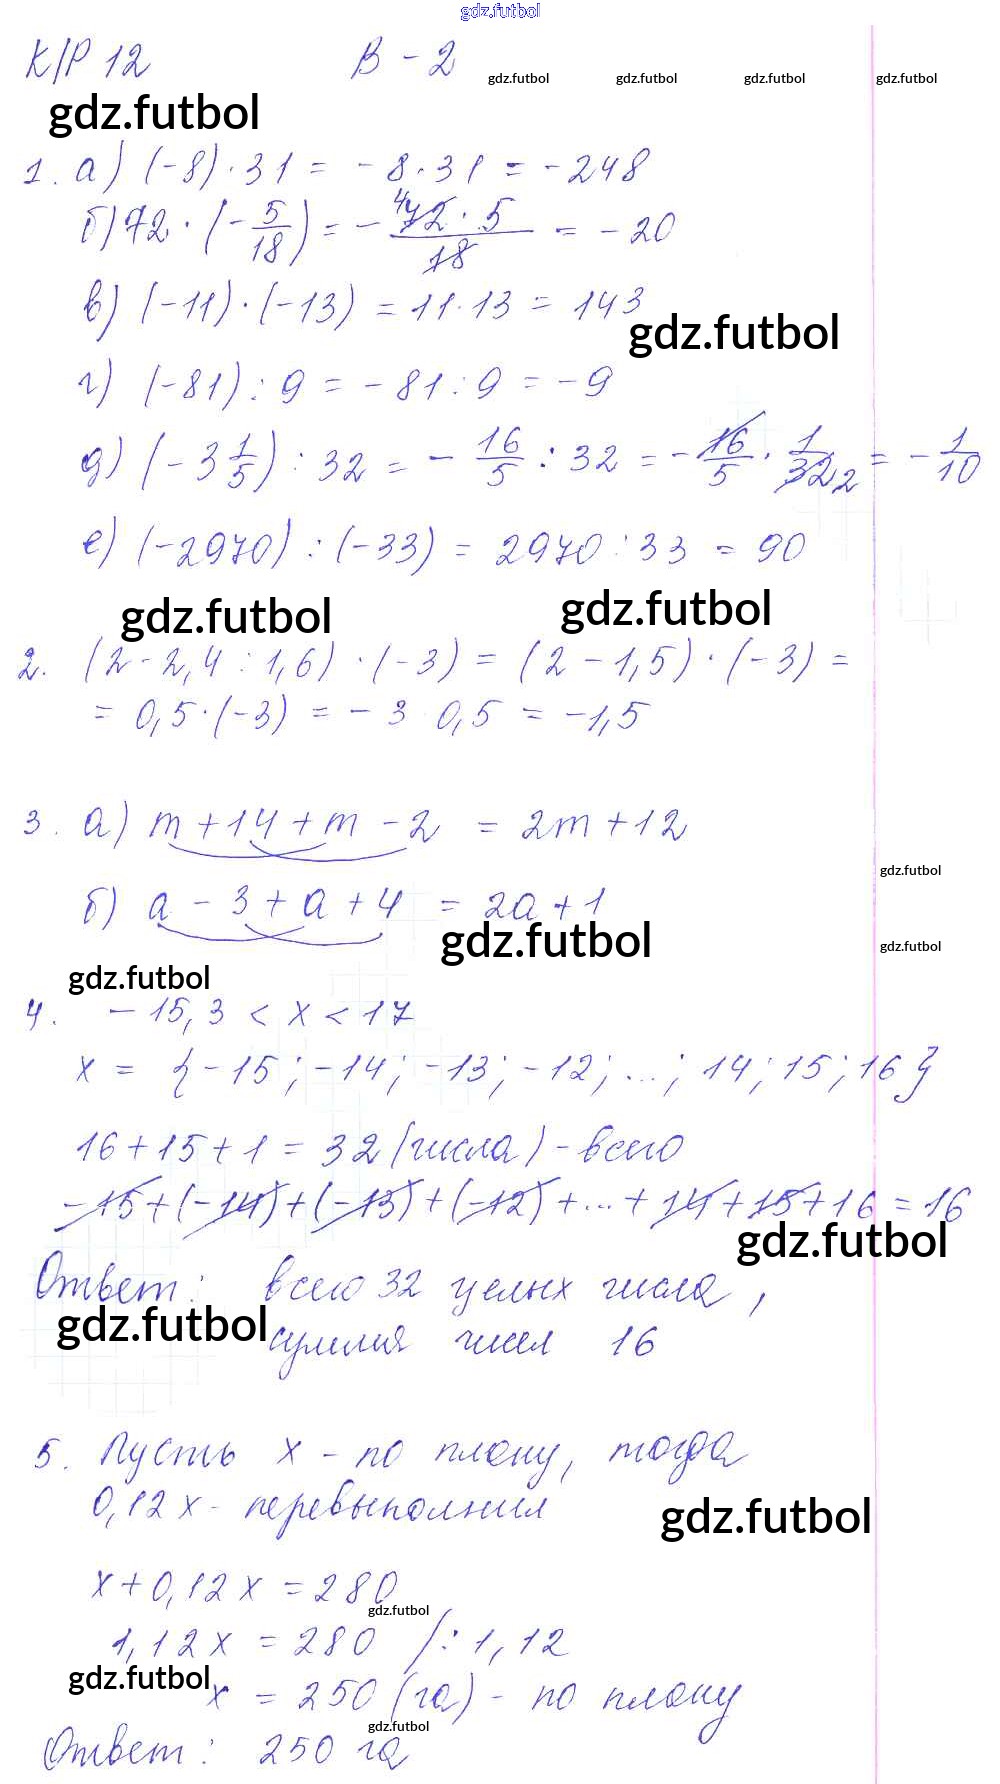 gdz.futbol
К/Р 12 В - 2
gdz.futbol gdz.futbol gdz.futbol gdz.futbol
gdz.futbol
1. а) (-8) · 31 = - 8 · 31 = - 248
б) 72 · (- 5/18) = - 4 72 · 5 / 18 = - 20
в) (-11) · (-13) = 11 · 13 = 143
gdz.futbol
г) (-81) : 9 = - 81 : 9 = - 9
д) (- 3 1/5) : 32 = - 16/5 : 32 = - 16/5 · 1/32 2 = - 1/10
е) (-2970) : (-33) = 2970 : 33 = 90
gdz.futbol gdz.futbol
2. (2 - 2,4 : 1,6) · (-3) = (2 - 1,5) · (-3) =
= 0,5 · (-3) = - 3 · 0,5 = -1,5
3. а) m + 14 + m - 2 = 2m + 12
gdz.futbol
б) a - 3 + a + 4 = 2a + 1
gdz.futbol gdz.futbol
gdz.futbol
4. - 15,3 < x < 17
x = {-15; -14; -13; -12; ...; 14; 15; 16}
16 + 15 + 1 = 32 (числа) - всего
-15 + (-14) + (-13) + (-12) + ... + 14 + 15 + 16 = 16
gdz.futbol
Ответ: всего 32 целых числа,
gdz.futbol сумма чисел 16
5. Пусть x - по плану, тогда
0,12x - перевыполнил
gdz.futbol
x + 0,12x = 280
gdz.futbol
1,12x = 280 /: 1,12
gdz.futbol x = 250 (га) - по плану
gdz.futbol
Ответ: 250 га